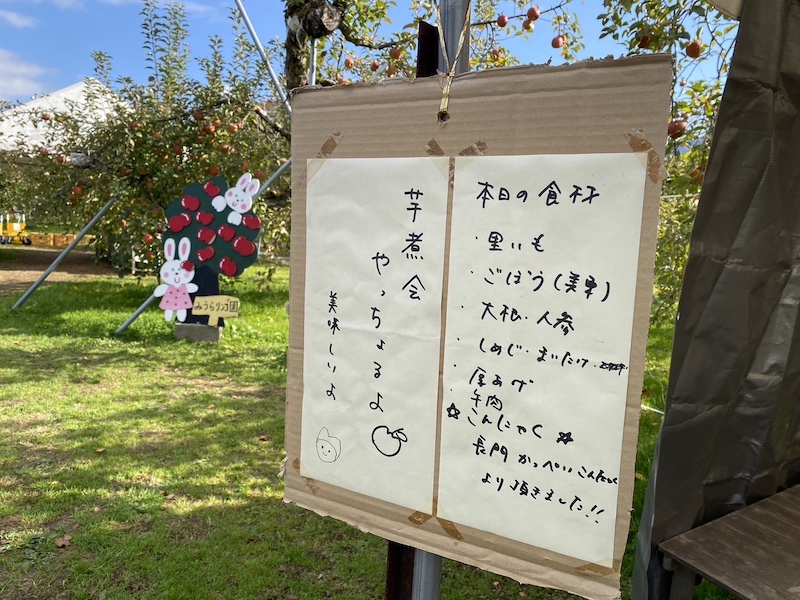 みうらリンゴ園
芋煮会
やっちょるよ
美味しいよ
本日の食材
・里いも
・ごぼう(美東)
・大根・人参
・しめじ・まいたけ・
・厚あげ
・牛肉
☆こんにゃく☆
長門 かっぺいこんにゃく
より頂きました!!